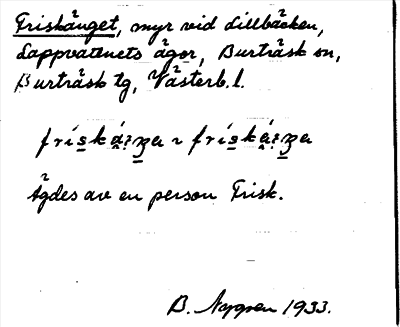 Friskänget, myr vid Lillbäcken,
Lappvattnets ägor, Burträsk sn,
Burträsk tg, Västerb. l.
Ägdes av en person Frisk.
B. Nygren 1933.